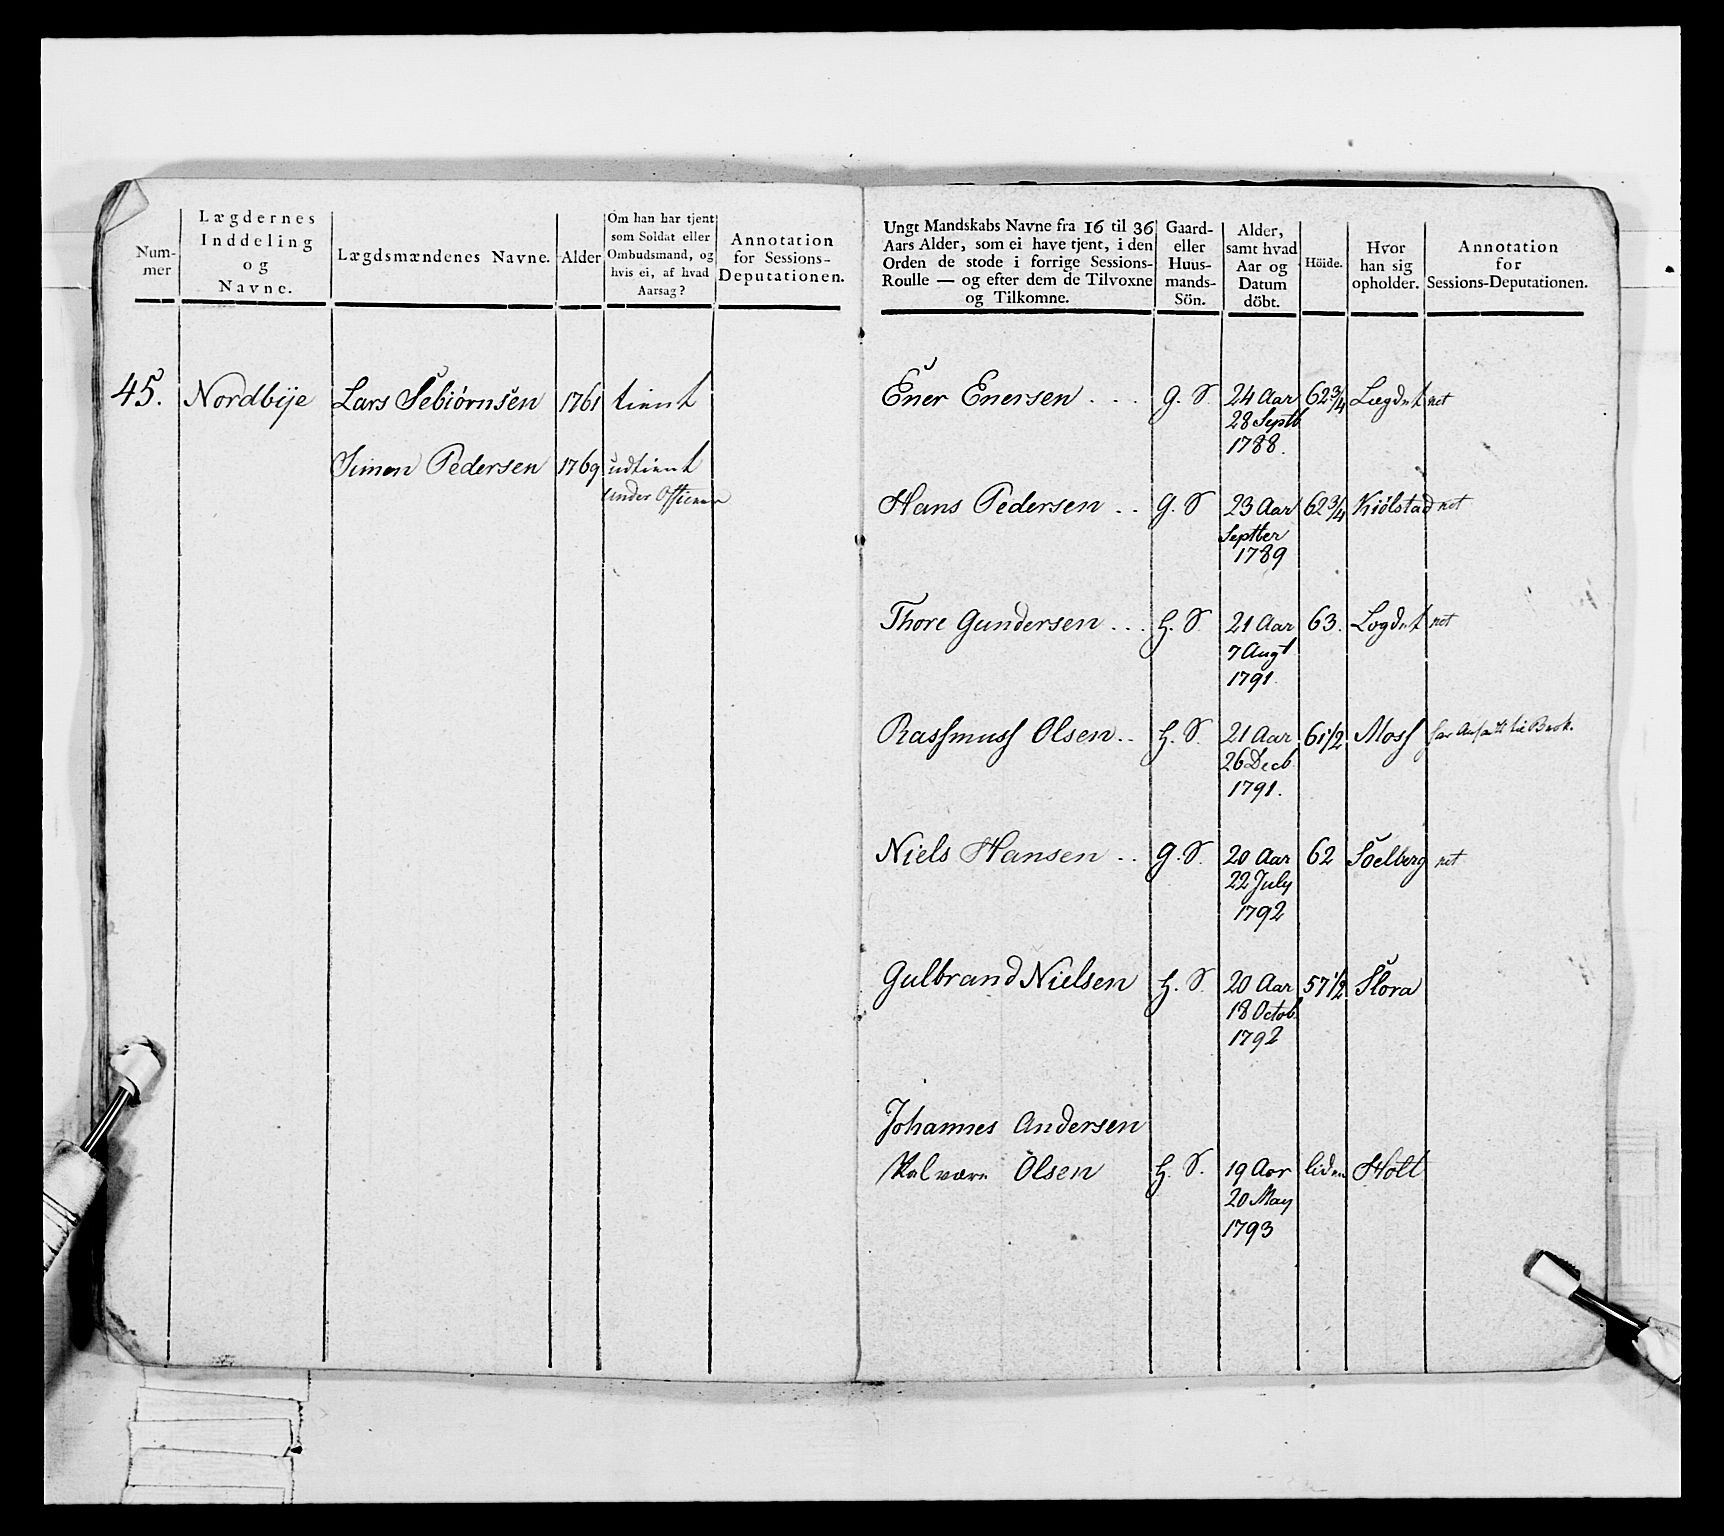 Num-
mer
Lægdernes
Inddeling
og
Navne.
Lægdsmændenes Navne.
Alder
Om han har tjent
som Soldat eller
Ombudsmand, og
hvis ei, af hvad
Aarsag?
Annotation
for Sessions-
Deputationen.
45. Nordbije Lars Sebiørnsen 1761 tient
Simon Pedersen 1769 udtient
under Officeer
Ungt Mandskabs Navne fra 16 til 36
Aars Alder, som ei have tjent, i den
Orden de stode i forrige Sessions-
Roulle — og efter dem de Tilvoxne
og Tilkomne.
Gaard-
eller
Huus-
mands-
Sön.
Alder,
samt hvad
Aar og
Datum
döbt.
Höide.
Hvor
han sig
opholder.
Annotation
for
Sessions-Deputationen.
Ener Enersen . . . G. S. 24 Aar 62 3/4 Lægdet
28 Septb
1788.
Hans Pedersen . . G. S 23 Aar 62 3/4 Kiölstad
Septber
1789
Thore Gundersen . . . H. S. 21 Aar 63. Lægdet
7 Augt
1791.
Rassmuss Olsen . . H. S. 21 Aar 61 1/2 Moss
26 Decb
1791.
Niels Hansen . . G. S. 20 Aar 62 Soelberg
22 July
1792
Gulbrand Nielsen H. S. 20 Aar 57 1/2 Slora
18 Octob.
1792
Johannes Andersen
Halvære Olsen H. S. 19 Aar liden Holt
20 May
1793